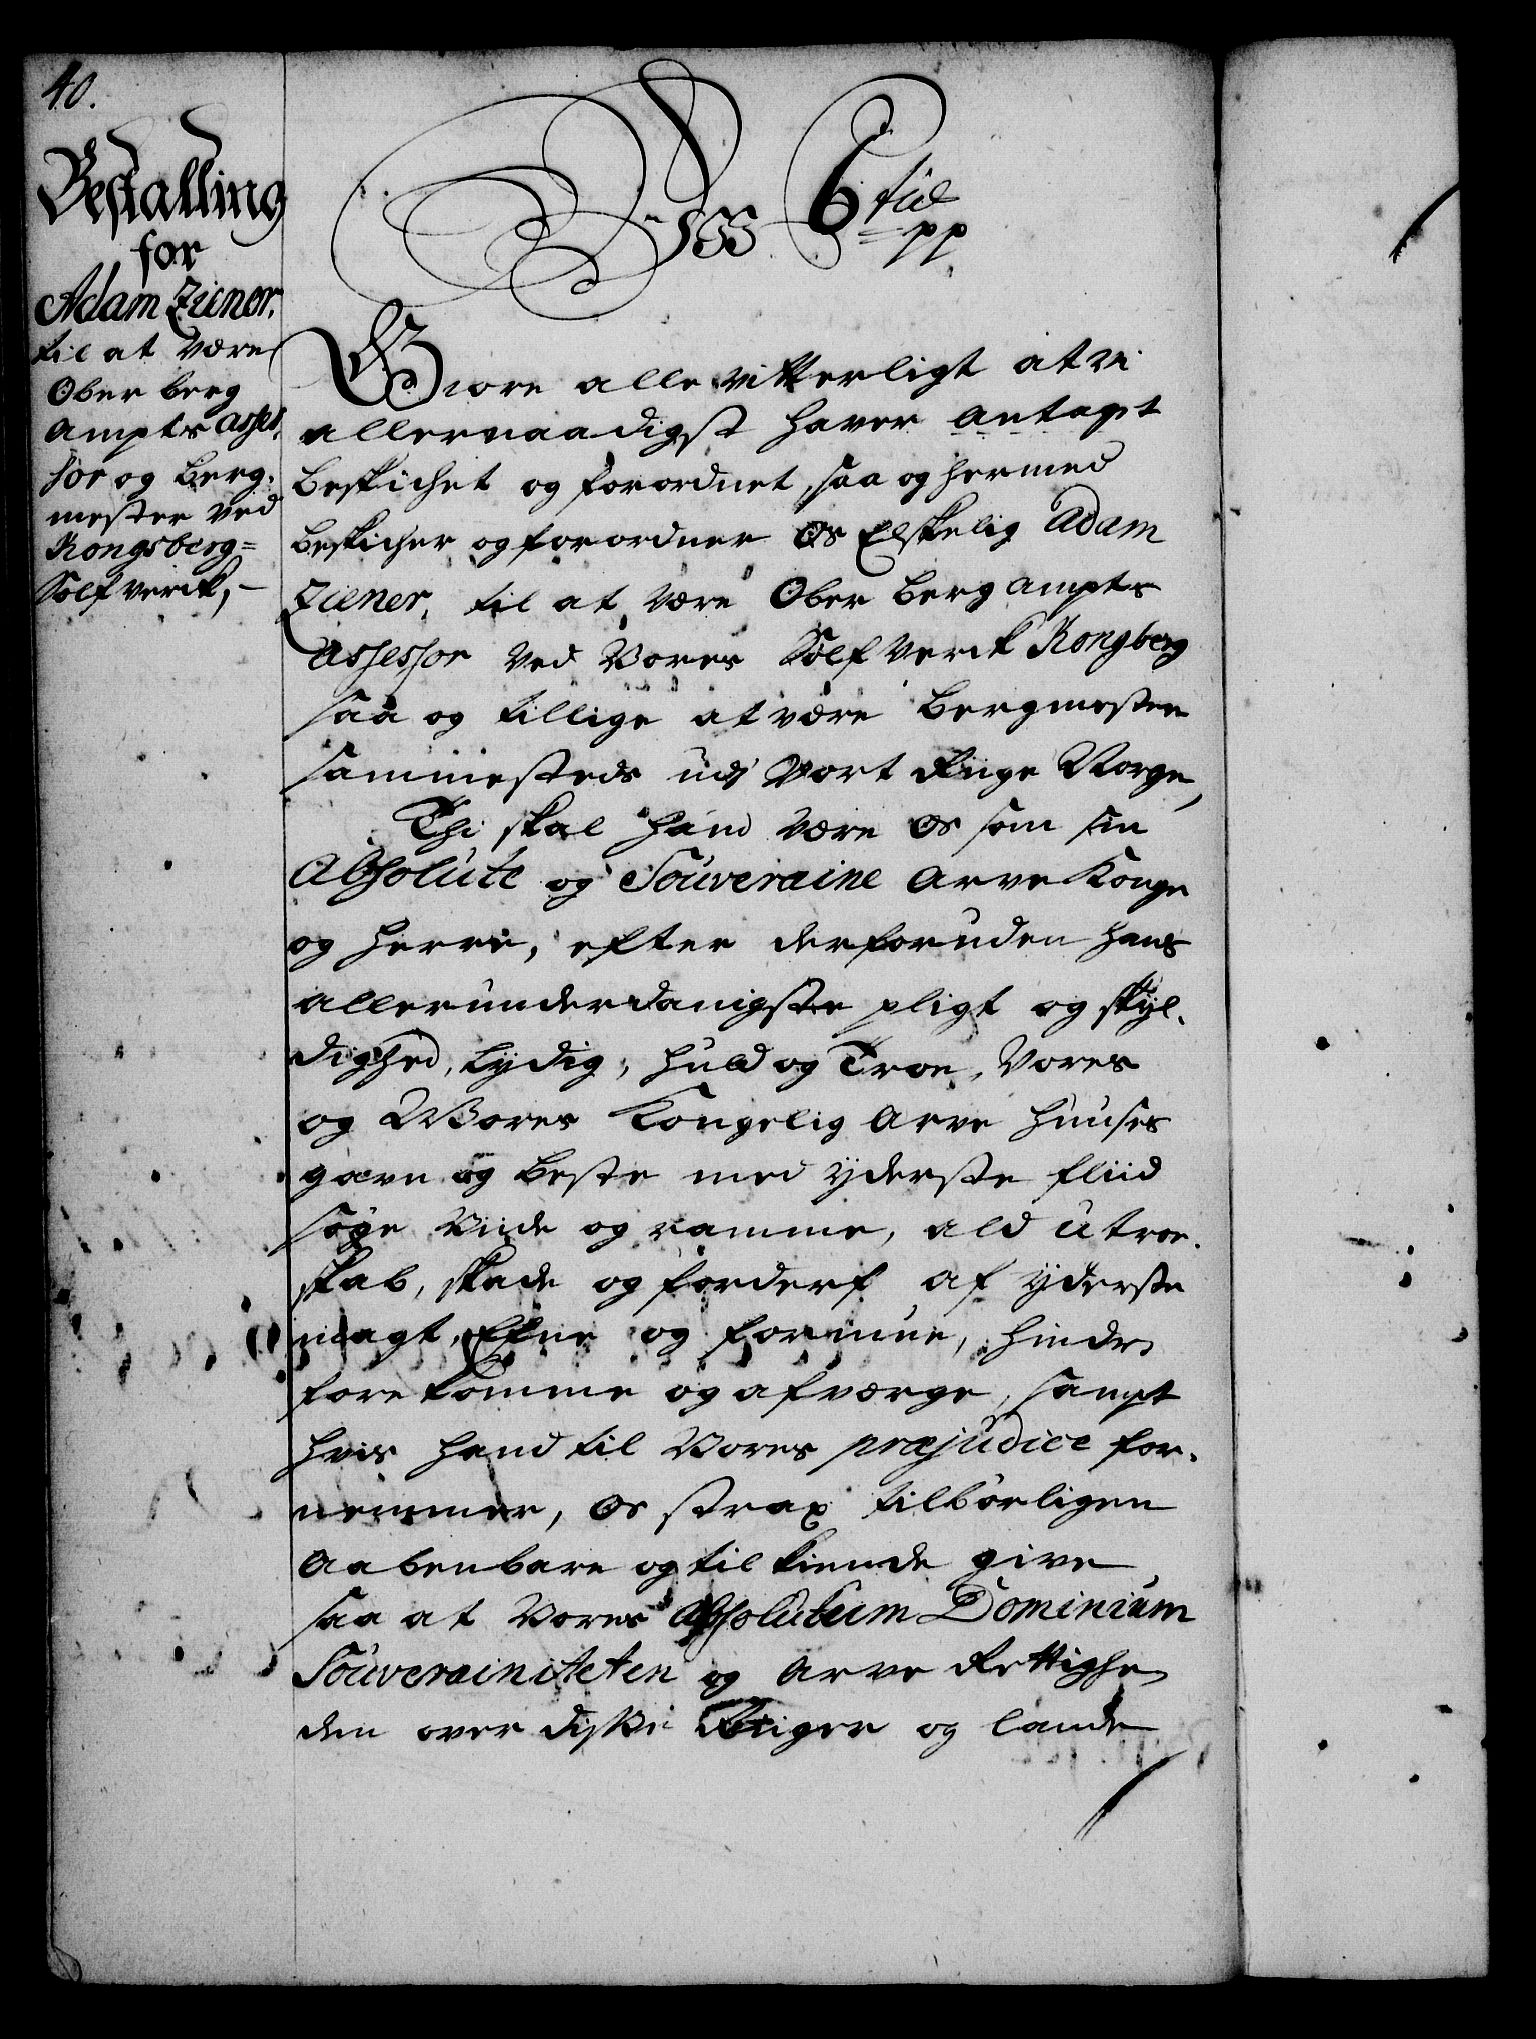 40.
Bestalling
for
Adam Ziener.
til at være
Ober berg
Ampts asses,
sor og berg,
mester ved
Kongsberg=
Sølfverck,
C 6 tid
pp
Giøre alle vitterligt at vi
allernaadigst haver antaget
beskichet og forordnet, saa og hermed
beskicher og forordner Os Elskelig Adam
Ziener, til at være Ober berg ampts
Assessor ved Vores Sølfverck Kongberg
saa og tillige at være bergmester
sammesteds udj Vort Riige Norge,
Thi skal hand være Os som sin
Absolute og Souveraine Arve Konge
og Herre, efter derforuden hans
allerunderdanigste pligt og skyl,
dighed, lydig, huld og Troe, Vores
og Wores Kongelig Arve Huuses
gavn og beste med yderste fliid
søge viide og ramme, ald utroe,
skab, skade og forderf af yderste
magt, Efne og formue, hindre
forekomme og afværge, sampt
hvis hand til Vores præjudice for,
nemmer, Os strax tilbørligen
aabenbare og tilkiende give
saa at Vores Absolutum Dominium
Souverainiteten og Arve Rettighe
den over disse Riiger og lande